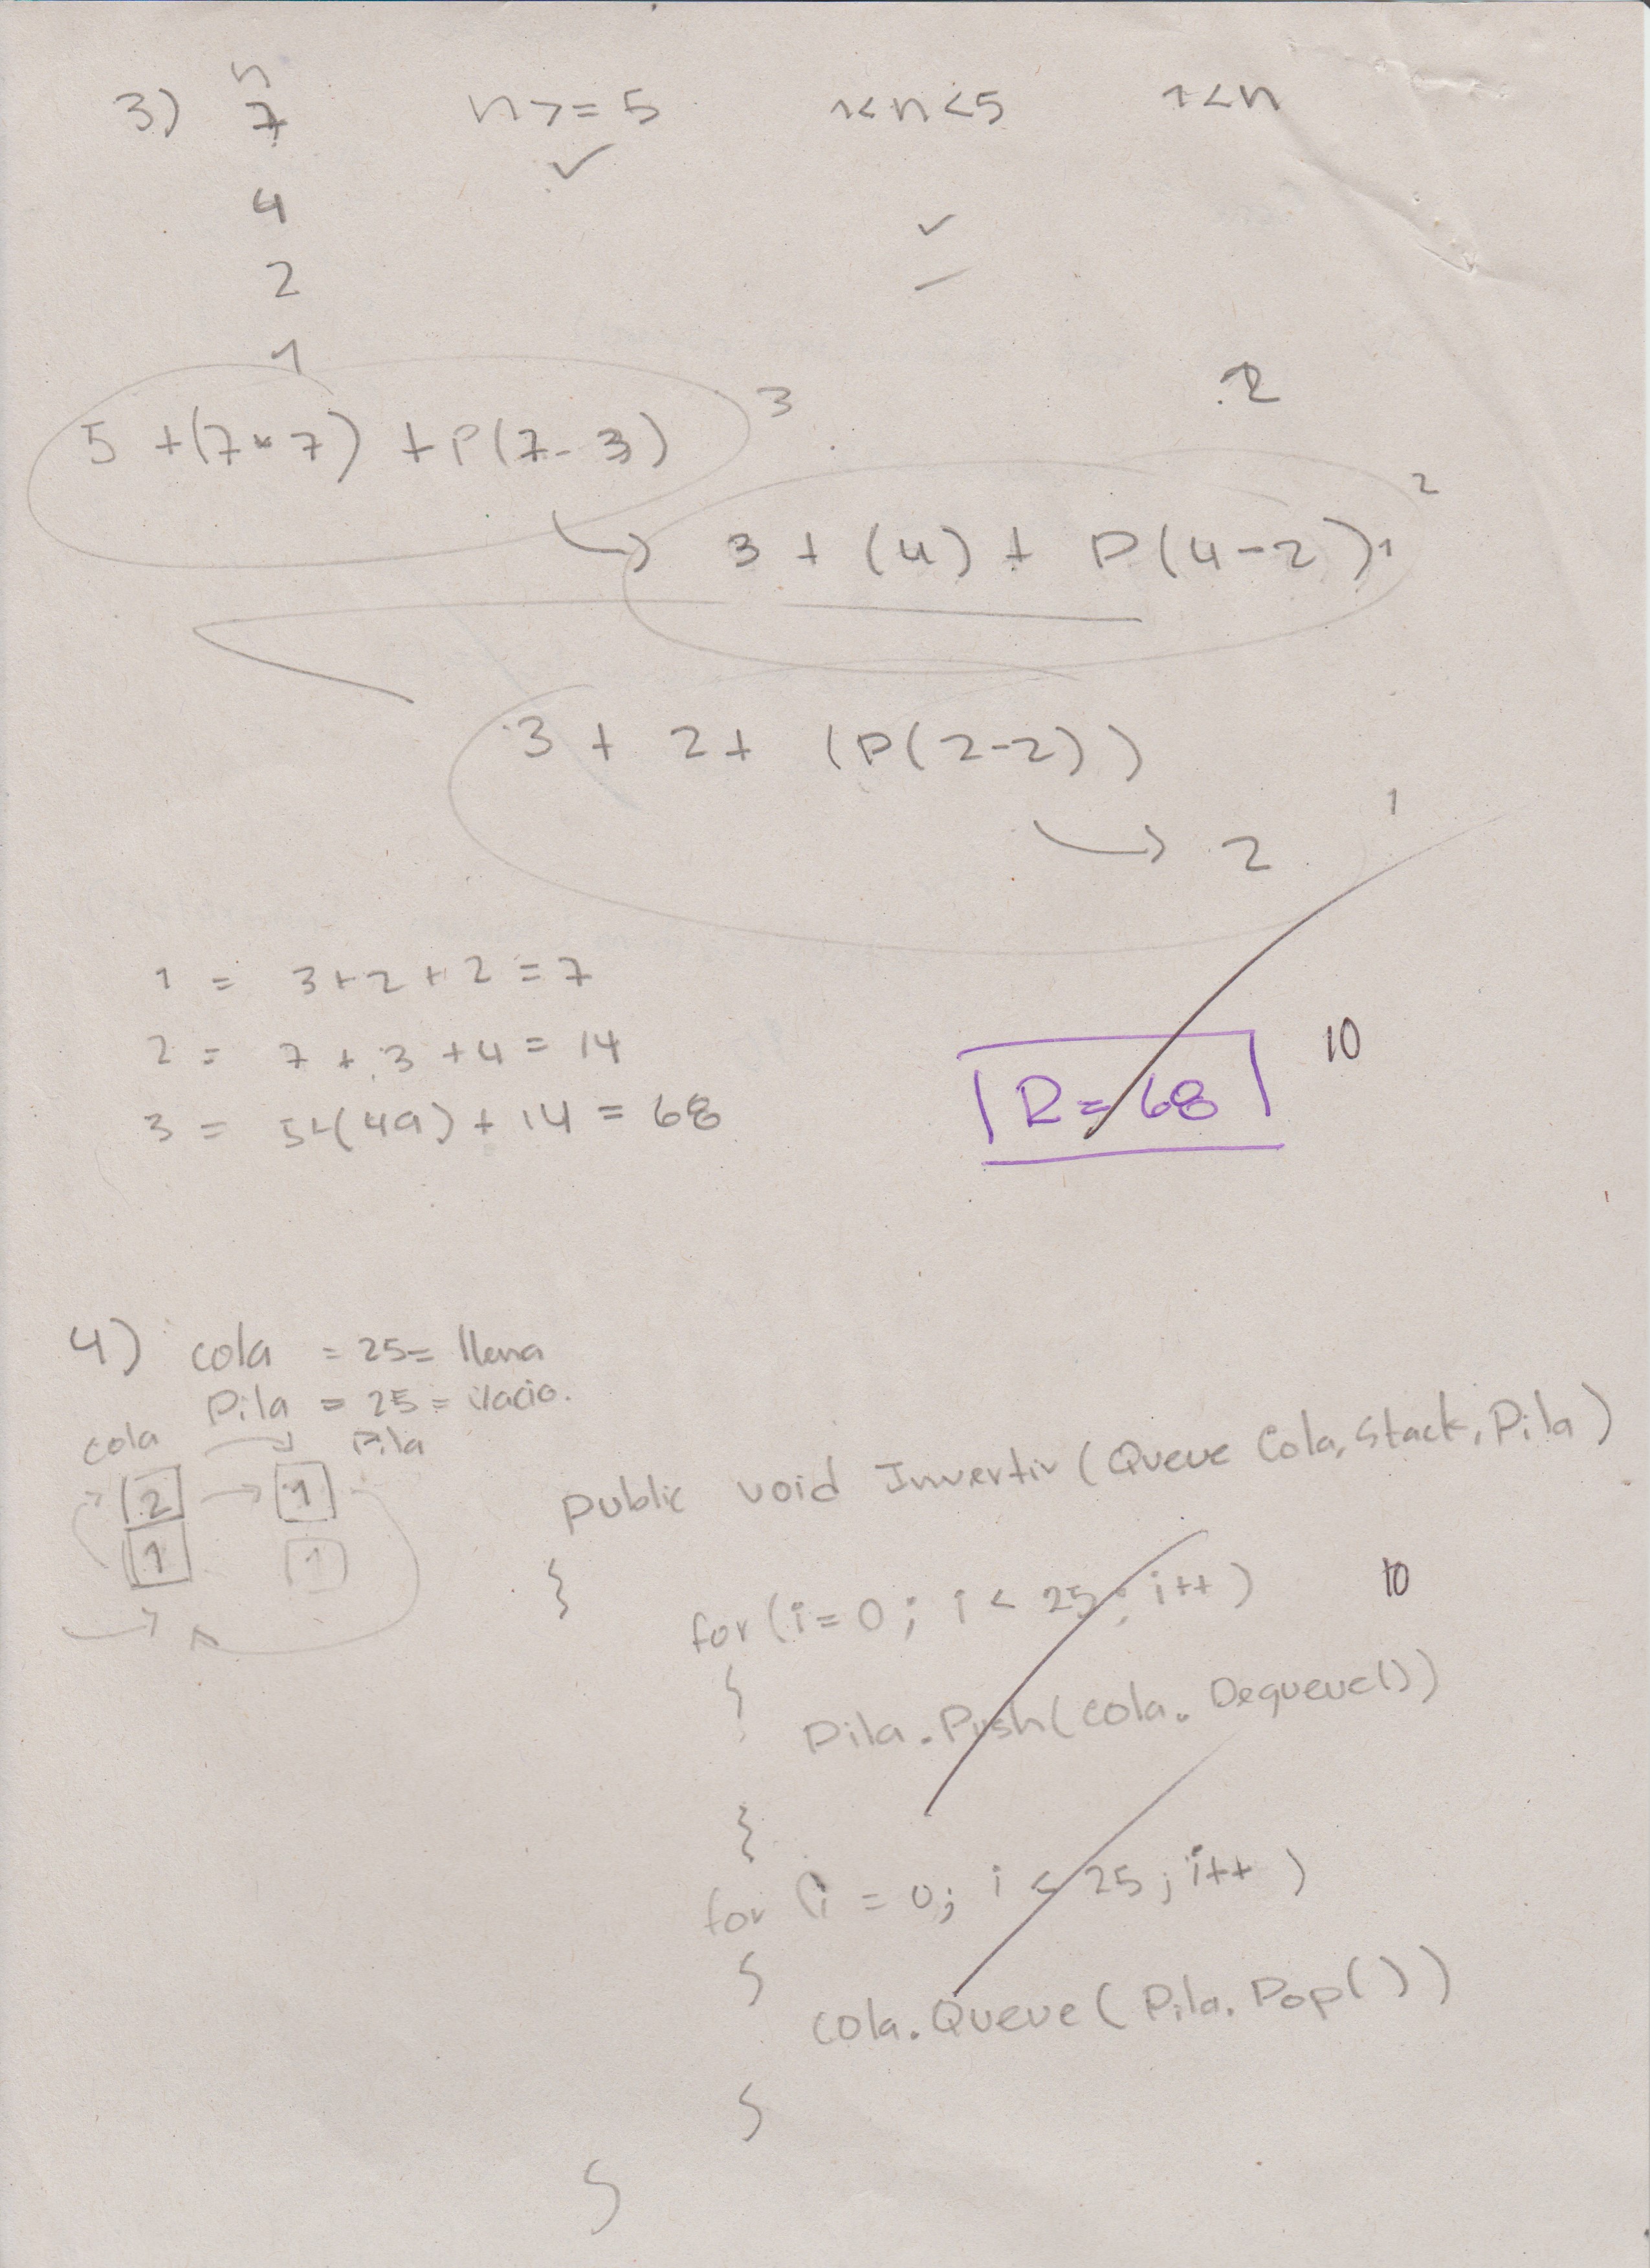 n
3) 7 n >= 5 1<n<5 1<n
✓
4 ✓
2 –
1
2
5 + (7*7) + P(7-3) 3
3 + (4) + P(4-2) 1 2
3 + 2 + (P(2-2))
2 1
1 = 3+2+2 = 7
2 = 7+3+4 = 14
3 = 5+(49)+14 = 68
R = 68 10
4) cola = 25 = llena
Pila = 25 = vacio.
cola Pila
2 1
1 1
public void Invertir (Queue Cola, Stack, Pila)
{
for (i=0; i < 25; i++) 10
{
Pila.Push(cola.Dequeue())
}
for (i = 0; i < 25; i++)
{
cola.Queue(Pila.Pop())
}
}